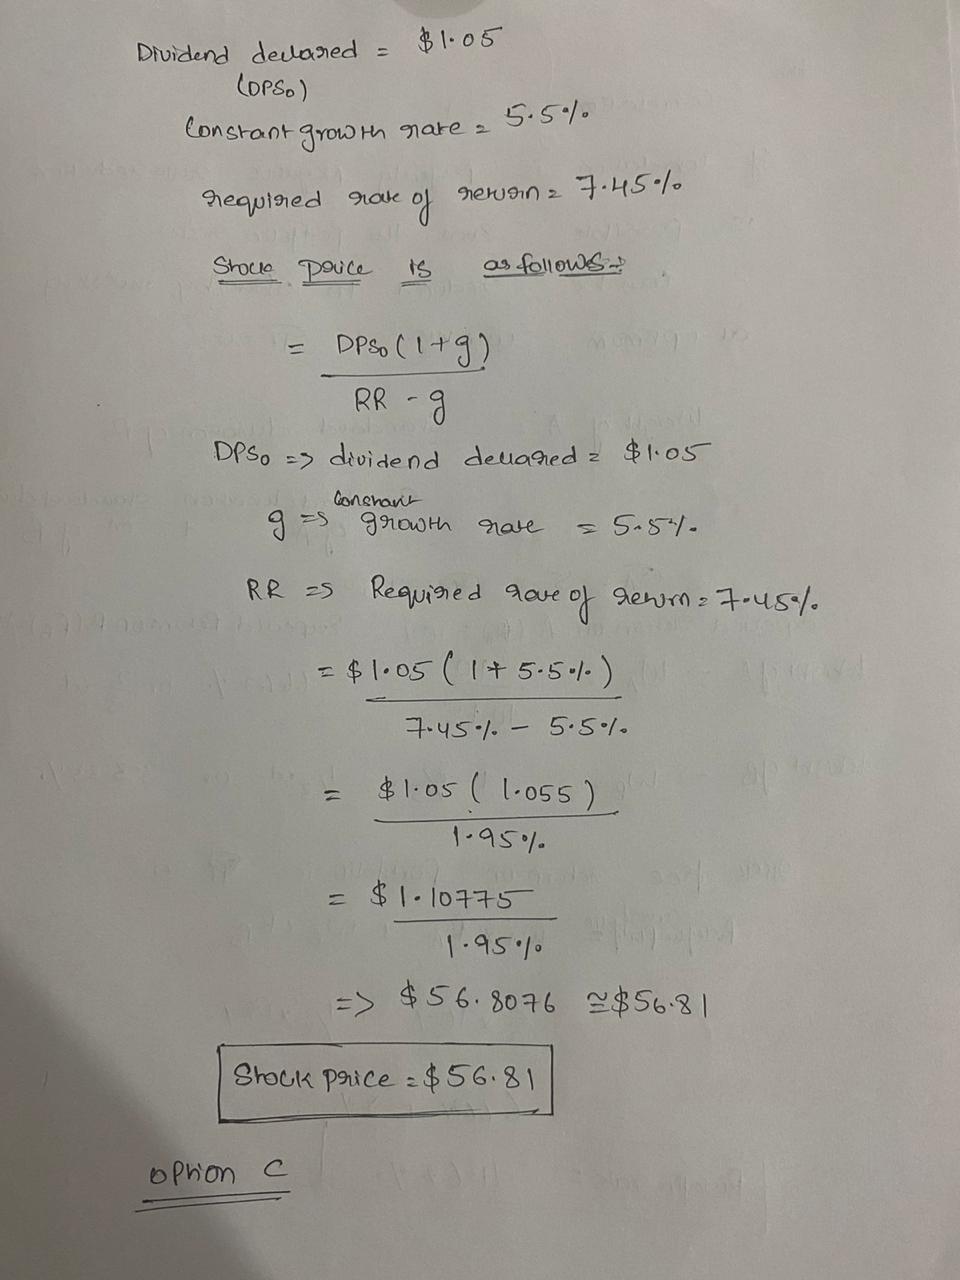 Dividend declared = $1.05
(DPS0)
Constant growth rate = 5.5%
required rate of return = 7.45%
Stock price is as follows:-
= DPS0 (1+g)
RR - g
DPS0 => dividend declared = $1.05
g => constant growth rate = 5.5%
RR => Required rate of return = 7.45%
= $1.05 (1 + 5.5%)
7.45% - 5.5%
= $1.05 (1.055)
1.95%
= $1.10775
1.95%
=> $56.8076 ≅ $56.81
Stock price = $56.81
option C